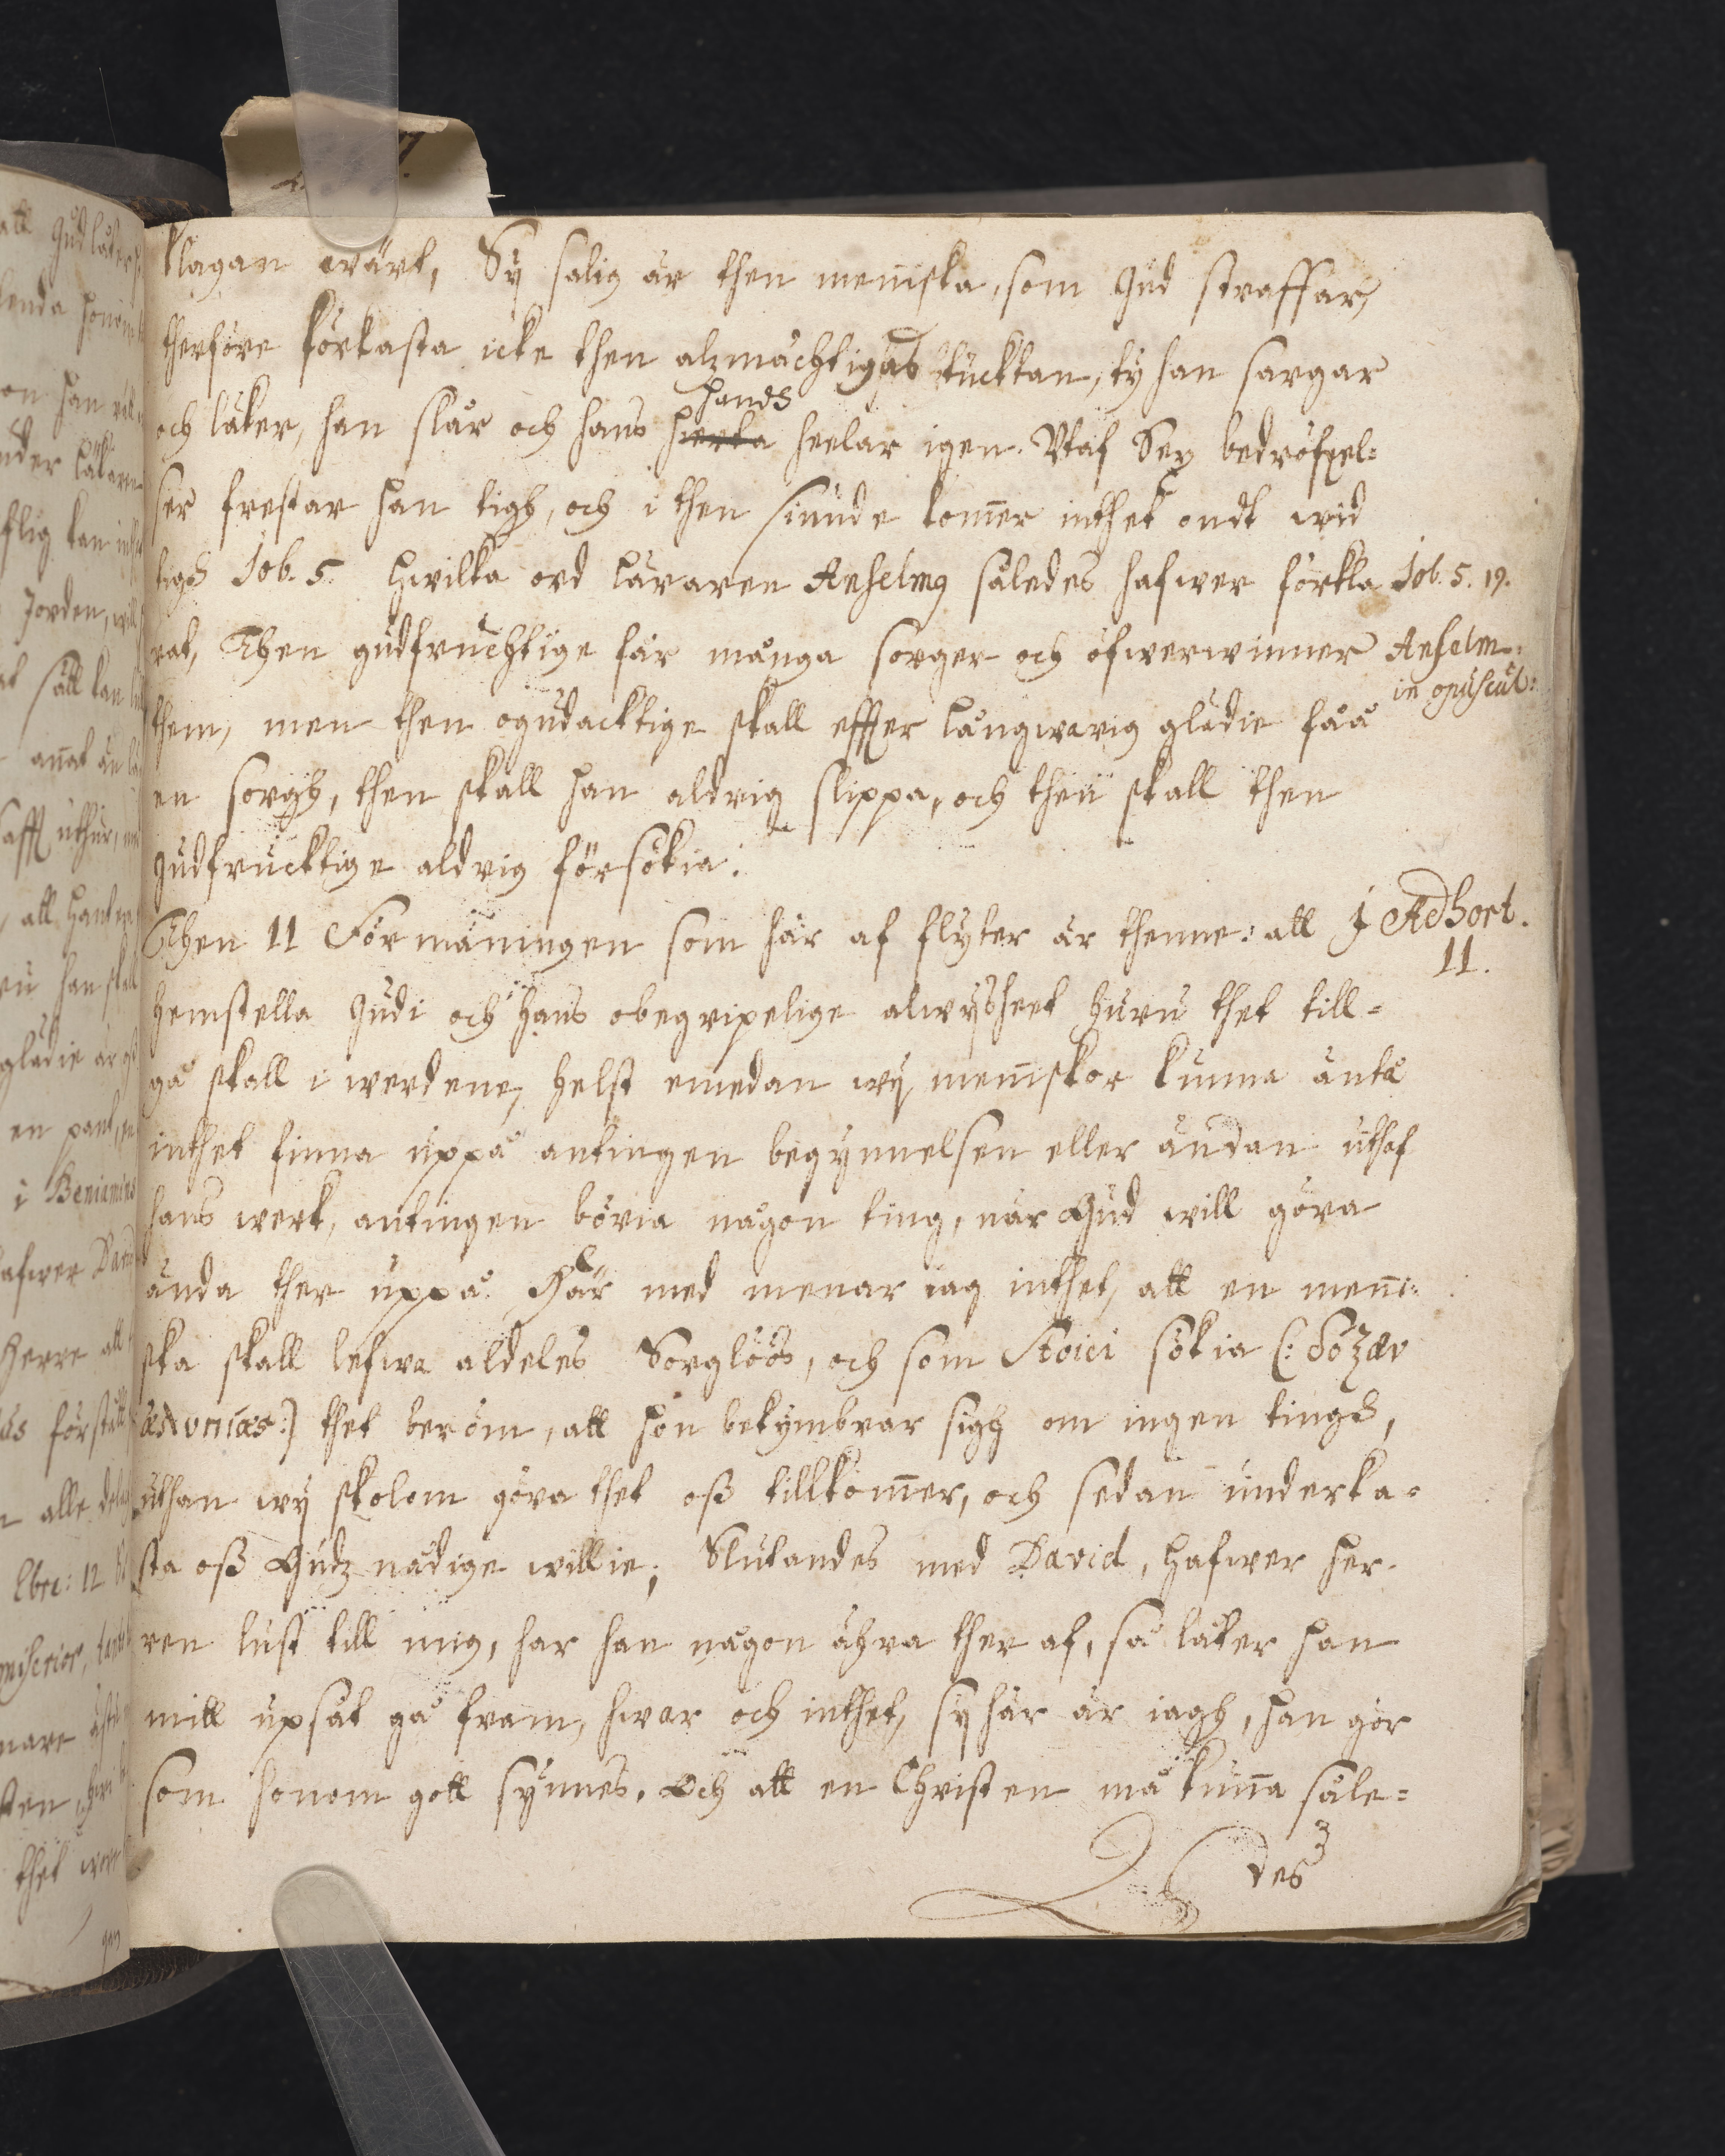 klagan wärt, Sÿ salig är then menniska, som Gud straffar,
therföre förkasta icke then alzmächtigas tucktan, ty han sargar
och läker, han slår och hans hierta heelar igen. Utaf Sex bedröfvel=
hands
ser frestar han tigh, och i then siunde kom̄er inthet ondt wid
tigh Job. 5. hvilka ord läraren Anselmus således hafwer förkla
Job. 5. 19.
rat, Then gudfruchtige får många sorger och öfwerwinner
Anselm:
in opuscul:
them, men then ogudacktige skall effter långwarig glädie fåå
en sorgh, then skall han aldrig slippa, och then skall then
gudfrucktige aldrig försökia.
Then 11 Förmaningen som här af flyter är thenne: att
j Adhort.
11.
hemstella Gudi och hans obegripelige alwÿsheet huru thet till=
gå skall i werdene, helst emedan wÿ menniskor kunna äntå
inthet finna uppå antingen begynnelsen eller ändan uthaf
hans werk, antingen böria någon ting, när Gud will göra
ända ther uppå. Här med menar iag inthet, att en menni=
ska skall lefwa aldeles Sorglöös, och som Stoici sökia (: δόξαν
αλυπίας:) thet beröm, att hon bekymbrar sigh om ingen tingh,
uthan wÿ skolom göra thet oß tillkom̄er, och sedan underka=
sta oß Gudz nådige willie; Slutandes med David, hafwer her=
ren lust till mig, har han någon ähra ther af, så låter han
mitt upsåt gå fram, hwar och inthet, sÿ här är iagh, han gör
som honom gott sÿnnes. Och att en Christen må kun̄a såle=
des
3